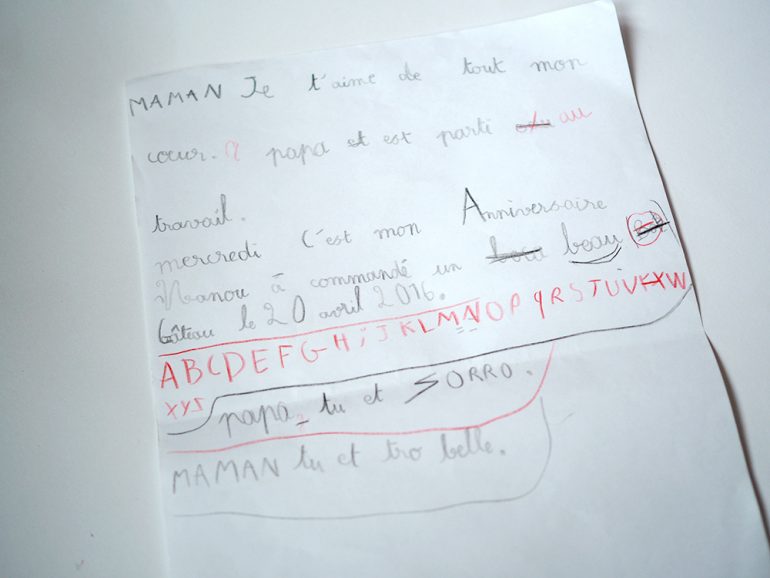 MAMAN Je t'aime de tout mon
cœur. papa et est parti au
travail.
mercredi C'est mon Anniversaire
Nanou à commandé un beau
Gâteau le 20 avril 2016.
ABCDEFGHijKLMNOPqRSTUVXW
XYZ
papa tu et ZORRO.
MAMAN tu et tro belle.